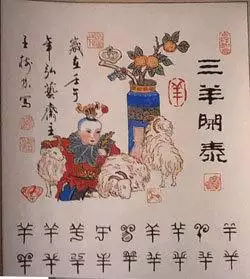 三羊開泰
羊
歲在壬午
年弘藝齋主
王樹寫
羊羊羊羊羊羊羊羊羊
羊羊羊羊羊羊羊羊羊